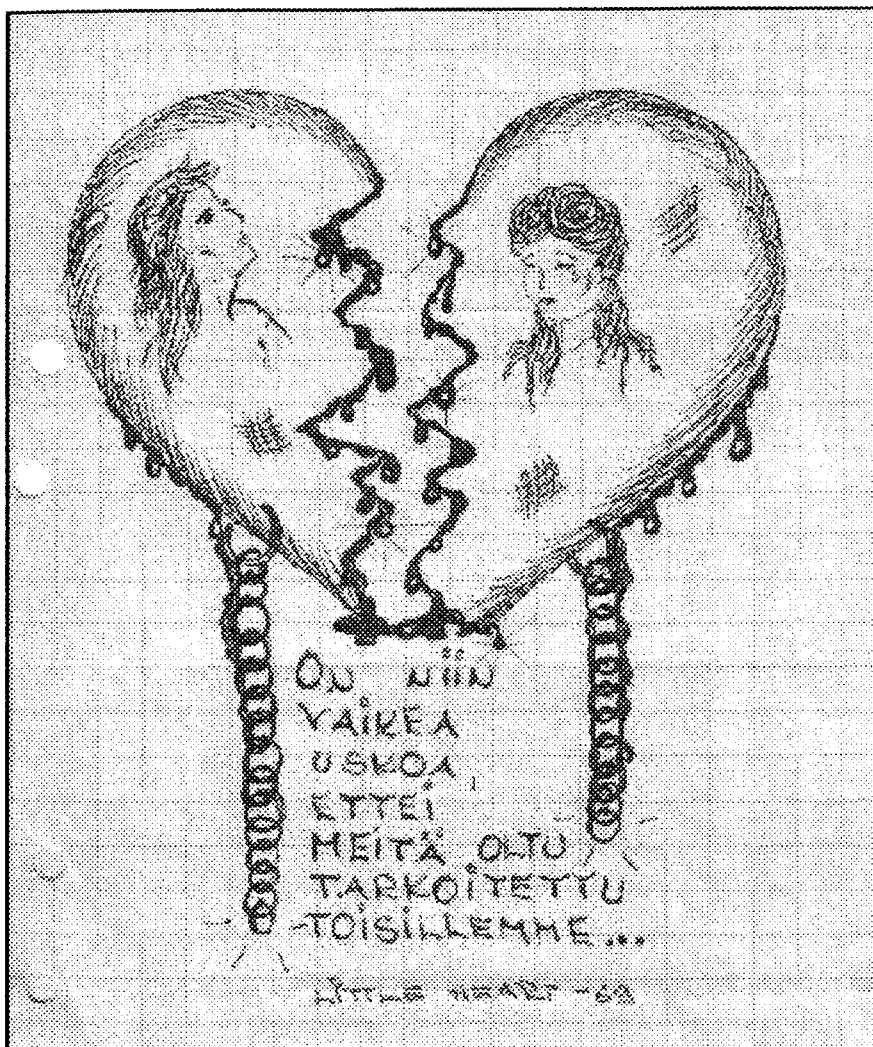 ON NIIN
VAIKEA
USKOA,
ETTEI
MEITÄ OLTU
TARKOITETTU
TOISILLEMME...
LITTLE HEART -69